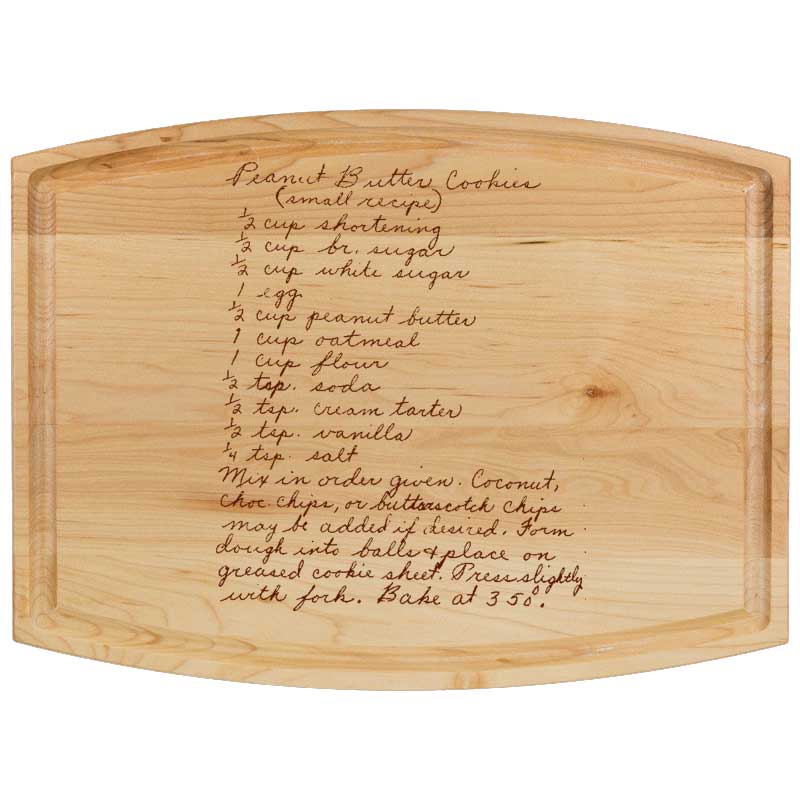 Peanut Butter Cookies
(small recipe)
½ cup shortening
½ cup br. sugar
½ cup white sugar
1 egg
½ cup peanut butter
1 cup oatmeal
1 cup flour
½ tsp. soda
½ tsp. cream tarter
½ tsp. vanilla
¼ tsp. salt
Mix in order given. Coconut,
choc. chips, or butterscotch chips
may be added if desired. Form
dough into balls & place on
greased cookie sheet. Press slightly
with fork. Bake at 350°.